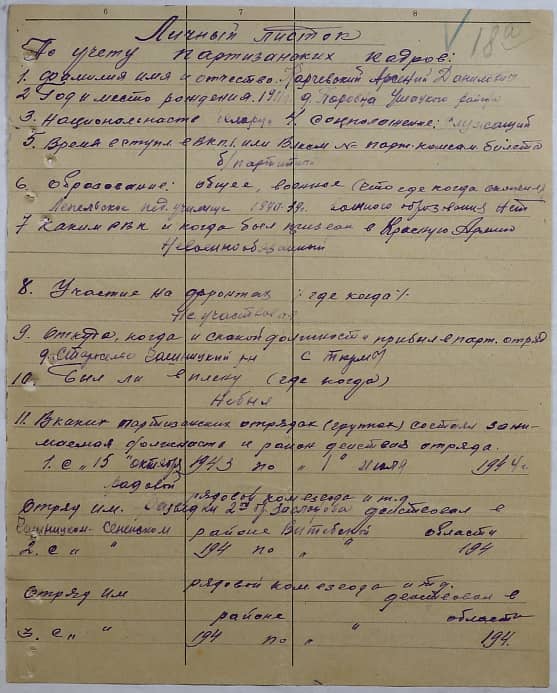 6 7 8
18а
Личный листок
По учету партизанских кадров:
1. Фамилия имя и отчество Карчевский Арсений Данилович
2 Год и место рождения 19 д. Боровна Ушачского района
3. Национальность беларус 4. Соцположение: служащий
5. Время вступл в ВКПб. или ВЛКСМ № парт. комсом. билета
б/партит
6. Образование: общее, военное (что где когда окончил)
Лепельское пед. училище 1940 Военного образования Нет
7 Каким РВК и когда был призван в Красную Армию
Невоеннообязанный
8. Участие на фронтах /: где когда /:
Не участвовал
9. Откуда, когда и с какой должности прибыл в парт. отряд
д. Старжево р-н с
10. Был ли в плену (где когда)
Не был
11. В каких партизанских отрядах (группах) состоял зани-
маемая должность и район действия отряда.
1. с „ 15 " октября 1943 по „ 1 " июля 1944 г.
рядовой
рядовой комвзвода и т.д.
Отряд им. 2й Заслонова действовал в
Сеннском районе Витебской области
2. с „ " 194 по „ " 194
рядовой комвзвода и т.д.
Отряд им действовал в
районе области
3. с „ " 194 по „ " 194.